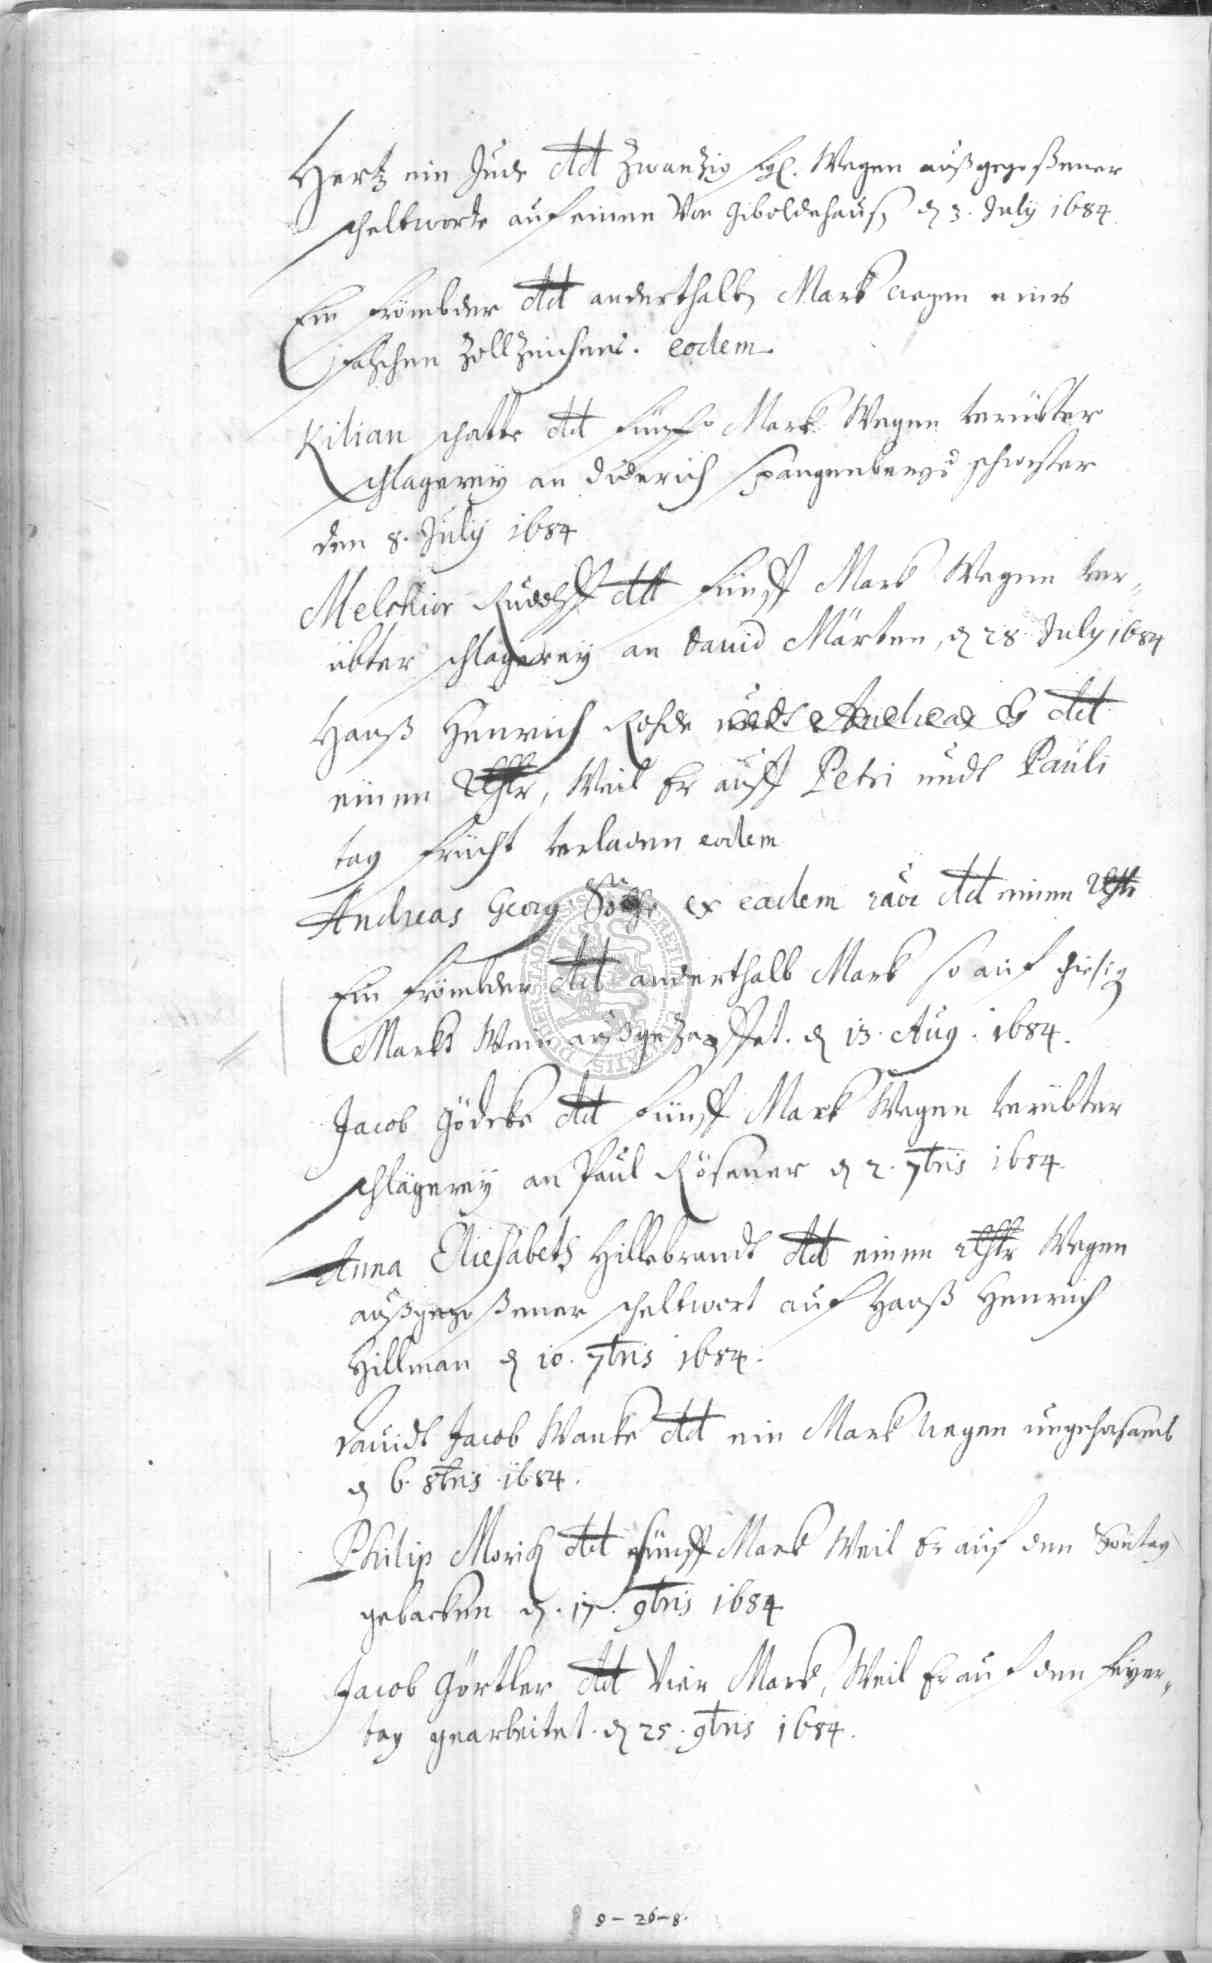 Hertz ein Jude dt Zwantzig ßgl. Wegen außgegoßener
scheltworte auf einen Von Giboldehaus, d 3. July 1684
Ein frömbder dt anderthalb Mark wegen eines
falschen Zollzeichens. eodem
Kilian schatte dt fünff Mark Wegen verübter
schlagerey an Diderich Spangenbergs schwester
den 8. July 1684
Melchior Rudolff dt fünff Mark Wegen ver„
übter schlagerey an David Märten, d 28 July 1684
Hanß Henrich Rohde undt Andreas G dt
einen Rthlr, Weil Er auff Petri undt Pauli
tag frücht verladen eodem
Andreas Georg ex eadem caũ dt einen Rthlr
Ein frömbder dt anderthalb Mark so auf hiesig
Markt Wein außgezapffet. d 13. Aug. 1684.
Jacob Gödeke dt fünff Mark Wegen verübter
schlägerey an Paul Rösener d 2. 7bris 1684.
Anna Eliesabeth Hillebrandt dt einen Rthlr Wegen
außgegoßener scheltwort auf Hanß Henrich
Hillman d 10. 7bris 1684.
Davidt Jacob Wanke dt ein Mark wegen ungehorsamb
d 6. 8bris 1684.
Philip Morick dt fünff Mark Weil Er auf den Sontag
gebacken d. 17. 9bris 1684
Jacob Görtler dt Vier Mark, Weil Er auf den feyer„
tag gearbeitet. d 25. 9bris 1684.
8-26-8.